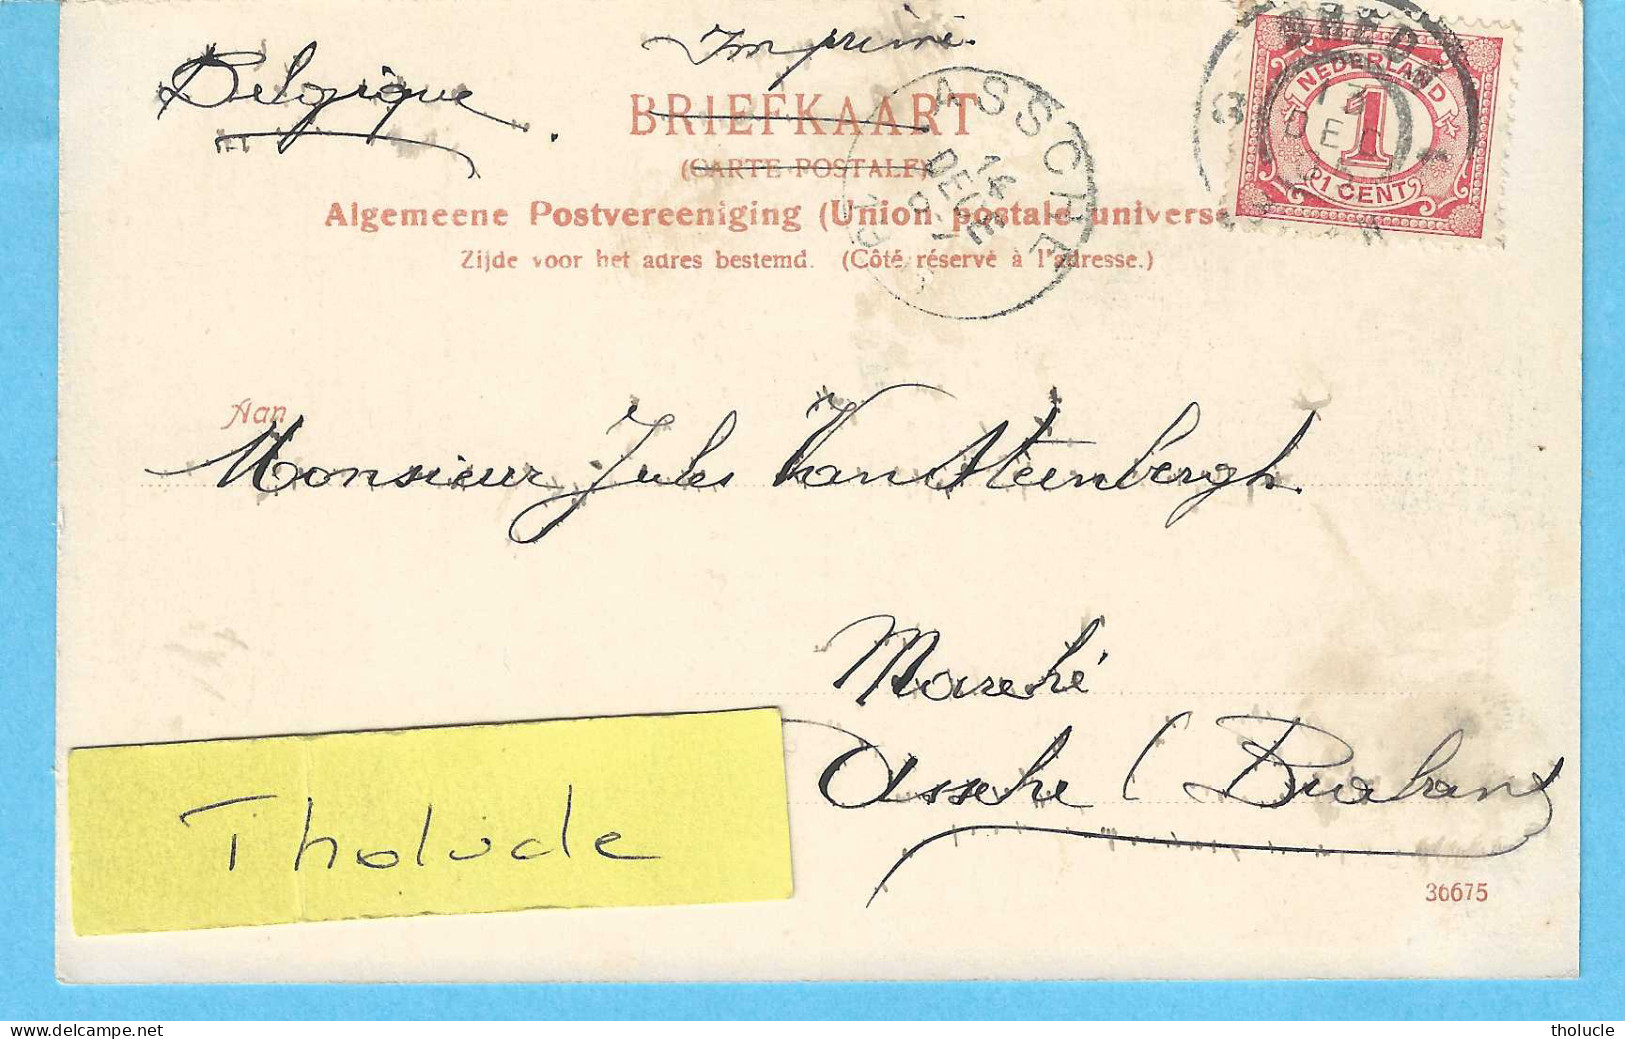 Belgique.
Imprimé.
BRIEFKAART
(CARTE POSTALE)
Algemeene Postvereeniging (Union postale universe
Zijde voor het adres bestemd. (Côté réservé à l'adresse.)
NEDERLAND
1
1 CENT
DEC
ASSCHE
14
DEC
Aan
Monsieur Jules Van Steenbergh.
Marché
Assche (Brabant)
Tholucle
36675
https://tholucle.delcampe.net
tholucle